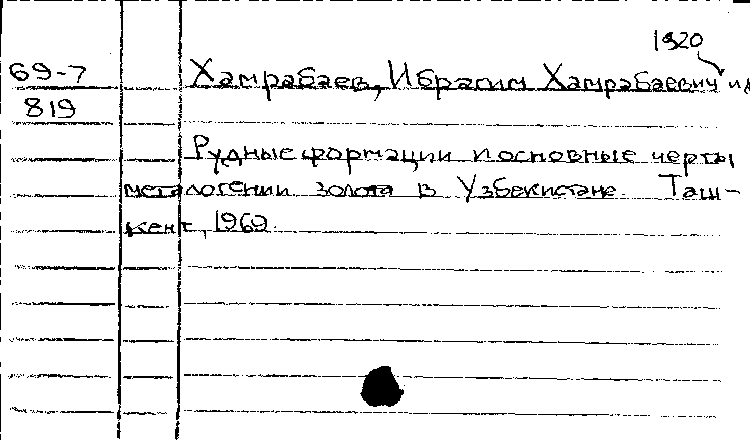 1920
69-7 Хамрабаев, Ибрагим Хамрабаевич и д
819
Рудные формации и основные черты
металогении золота в Узбекистане. Таш-
кент, 1969.